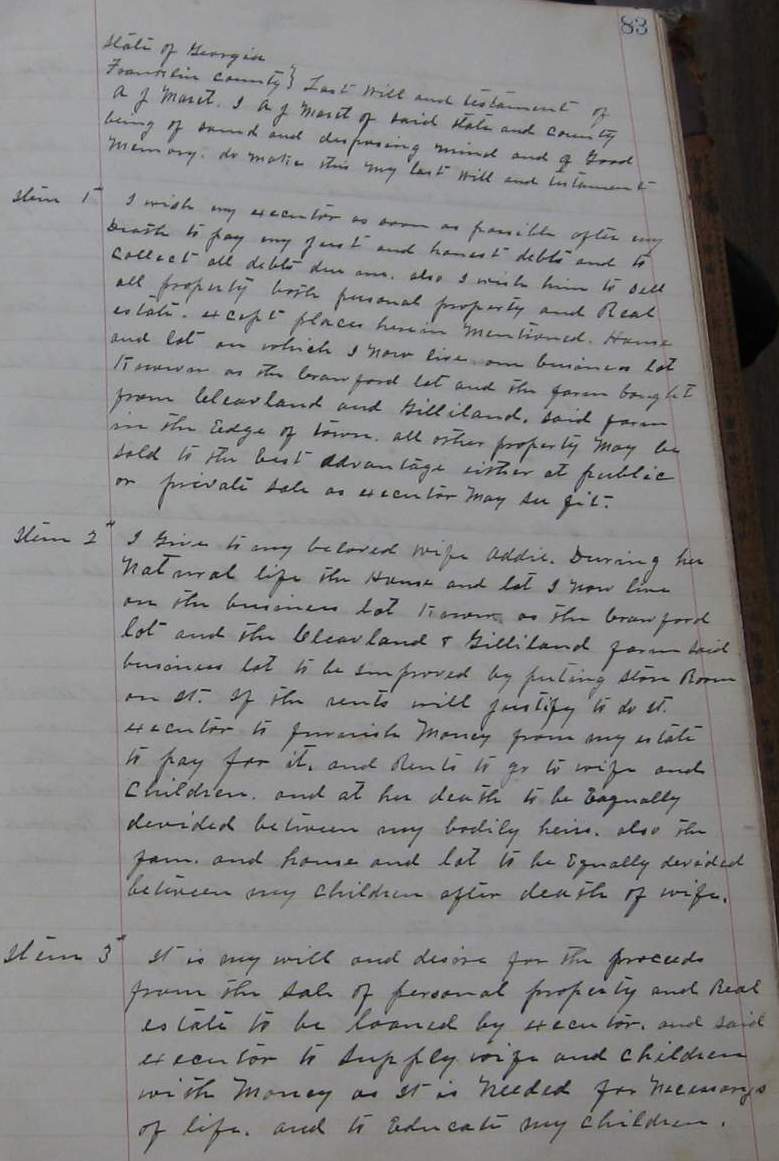 83
State of Georgia
Franklin County } Last Will and testament of
A J Maret. I A J Maret of said state and county
being of sound and disposing mind and of Good
Memory. do make this my last Will and testament
Item 1st I wish my executor as soon as possible after my
Death to pay my just and honest debts and to
Collect all debts due me. also I wish him to sell
all property both personal property and Real
estate. except places herein Mentioned. House
and lot on which I Now live. one business lot
Known as the Crawford lot and the farm bought
from Cleavland and Gilliland. said farm
in the Edge of town. all other property May be
sold to the best advantage either at public
or private sale as executor May see fit.
Item 2" I Give to my beloved wife Addie. During her
Natural life the House and lot I Now live
on the business lot Known as the Crawford
lot and the Cleavland & Gilliland farm said
business lot to be improved by puting store Room
on it. If the rents will justify to do it.
executor to furnish Money from my estate
to pay for it. and Rents to go to wife and
Children. and at her death to be Eaqually
devided between my bodily heirs. also the
fam. and house and lot to be Equally devided
between my Children after death of wife.
Item 3" It is my will and desire for the proceeds
from the sale of personal property and Real
estate to be loaned by executor. and said
executor to supply wife and children
with Money as it is Needed for Necessarys
of life. and to Educate my Children.